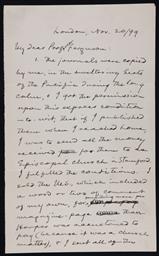 London, Nov. 20/99
My dear Prof. Ferguson:
1. The journals were copied
by me, in the sweltering heats
of the Pacific during the long
calm, & I got the permission
upon this express condition
—to wit, that if I published
them when I reached home,
I was to send all the money
received for them to an
Episcopal church in Stamford.
I fulfilled the conditions. I
sold the MS, which included
a word or two of comment
of my own, for
magazine-page than
Harper was accustomed to
pay (because it was a church
matter), & I sent all of the